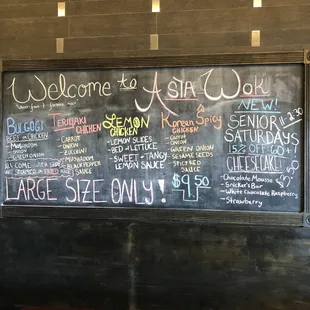 Welcome to Asia Wok
BULGOGI
BEEF OR CHICKEN
- MUSHROOM
- ONION
- GREEN ONION
ALL COME WITH
TERIYAKI
CHICKEN
- CARROT
- ONION
- ZUCCHINI
- MUSHROOM
- BLACKPEPPER
SAUCE
LEMON
CHICKEN
- LEMON SLICES
- BED of LETTUCE
- SWEET + TANGY
LEMON SAUCE
Korean Spicy
CHICKEN
- CARROT
- ONION
- GREEN ONION
- SESAME SEEDS
- SPICY RED
SAUCE
LARGE SIZE ONLY!
$9.50
NEW!
SENIOR
SATURDAYS
11-2:30
15% OFF
CHEESECAKE!
- Chocolate Mousse
- Snicker's Bar
- White Chocolate Raspberry
- Strawberry